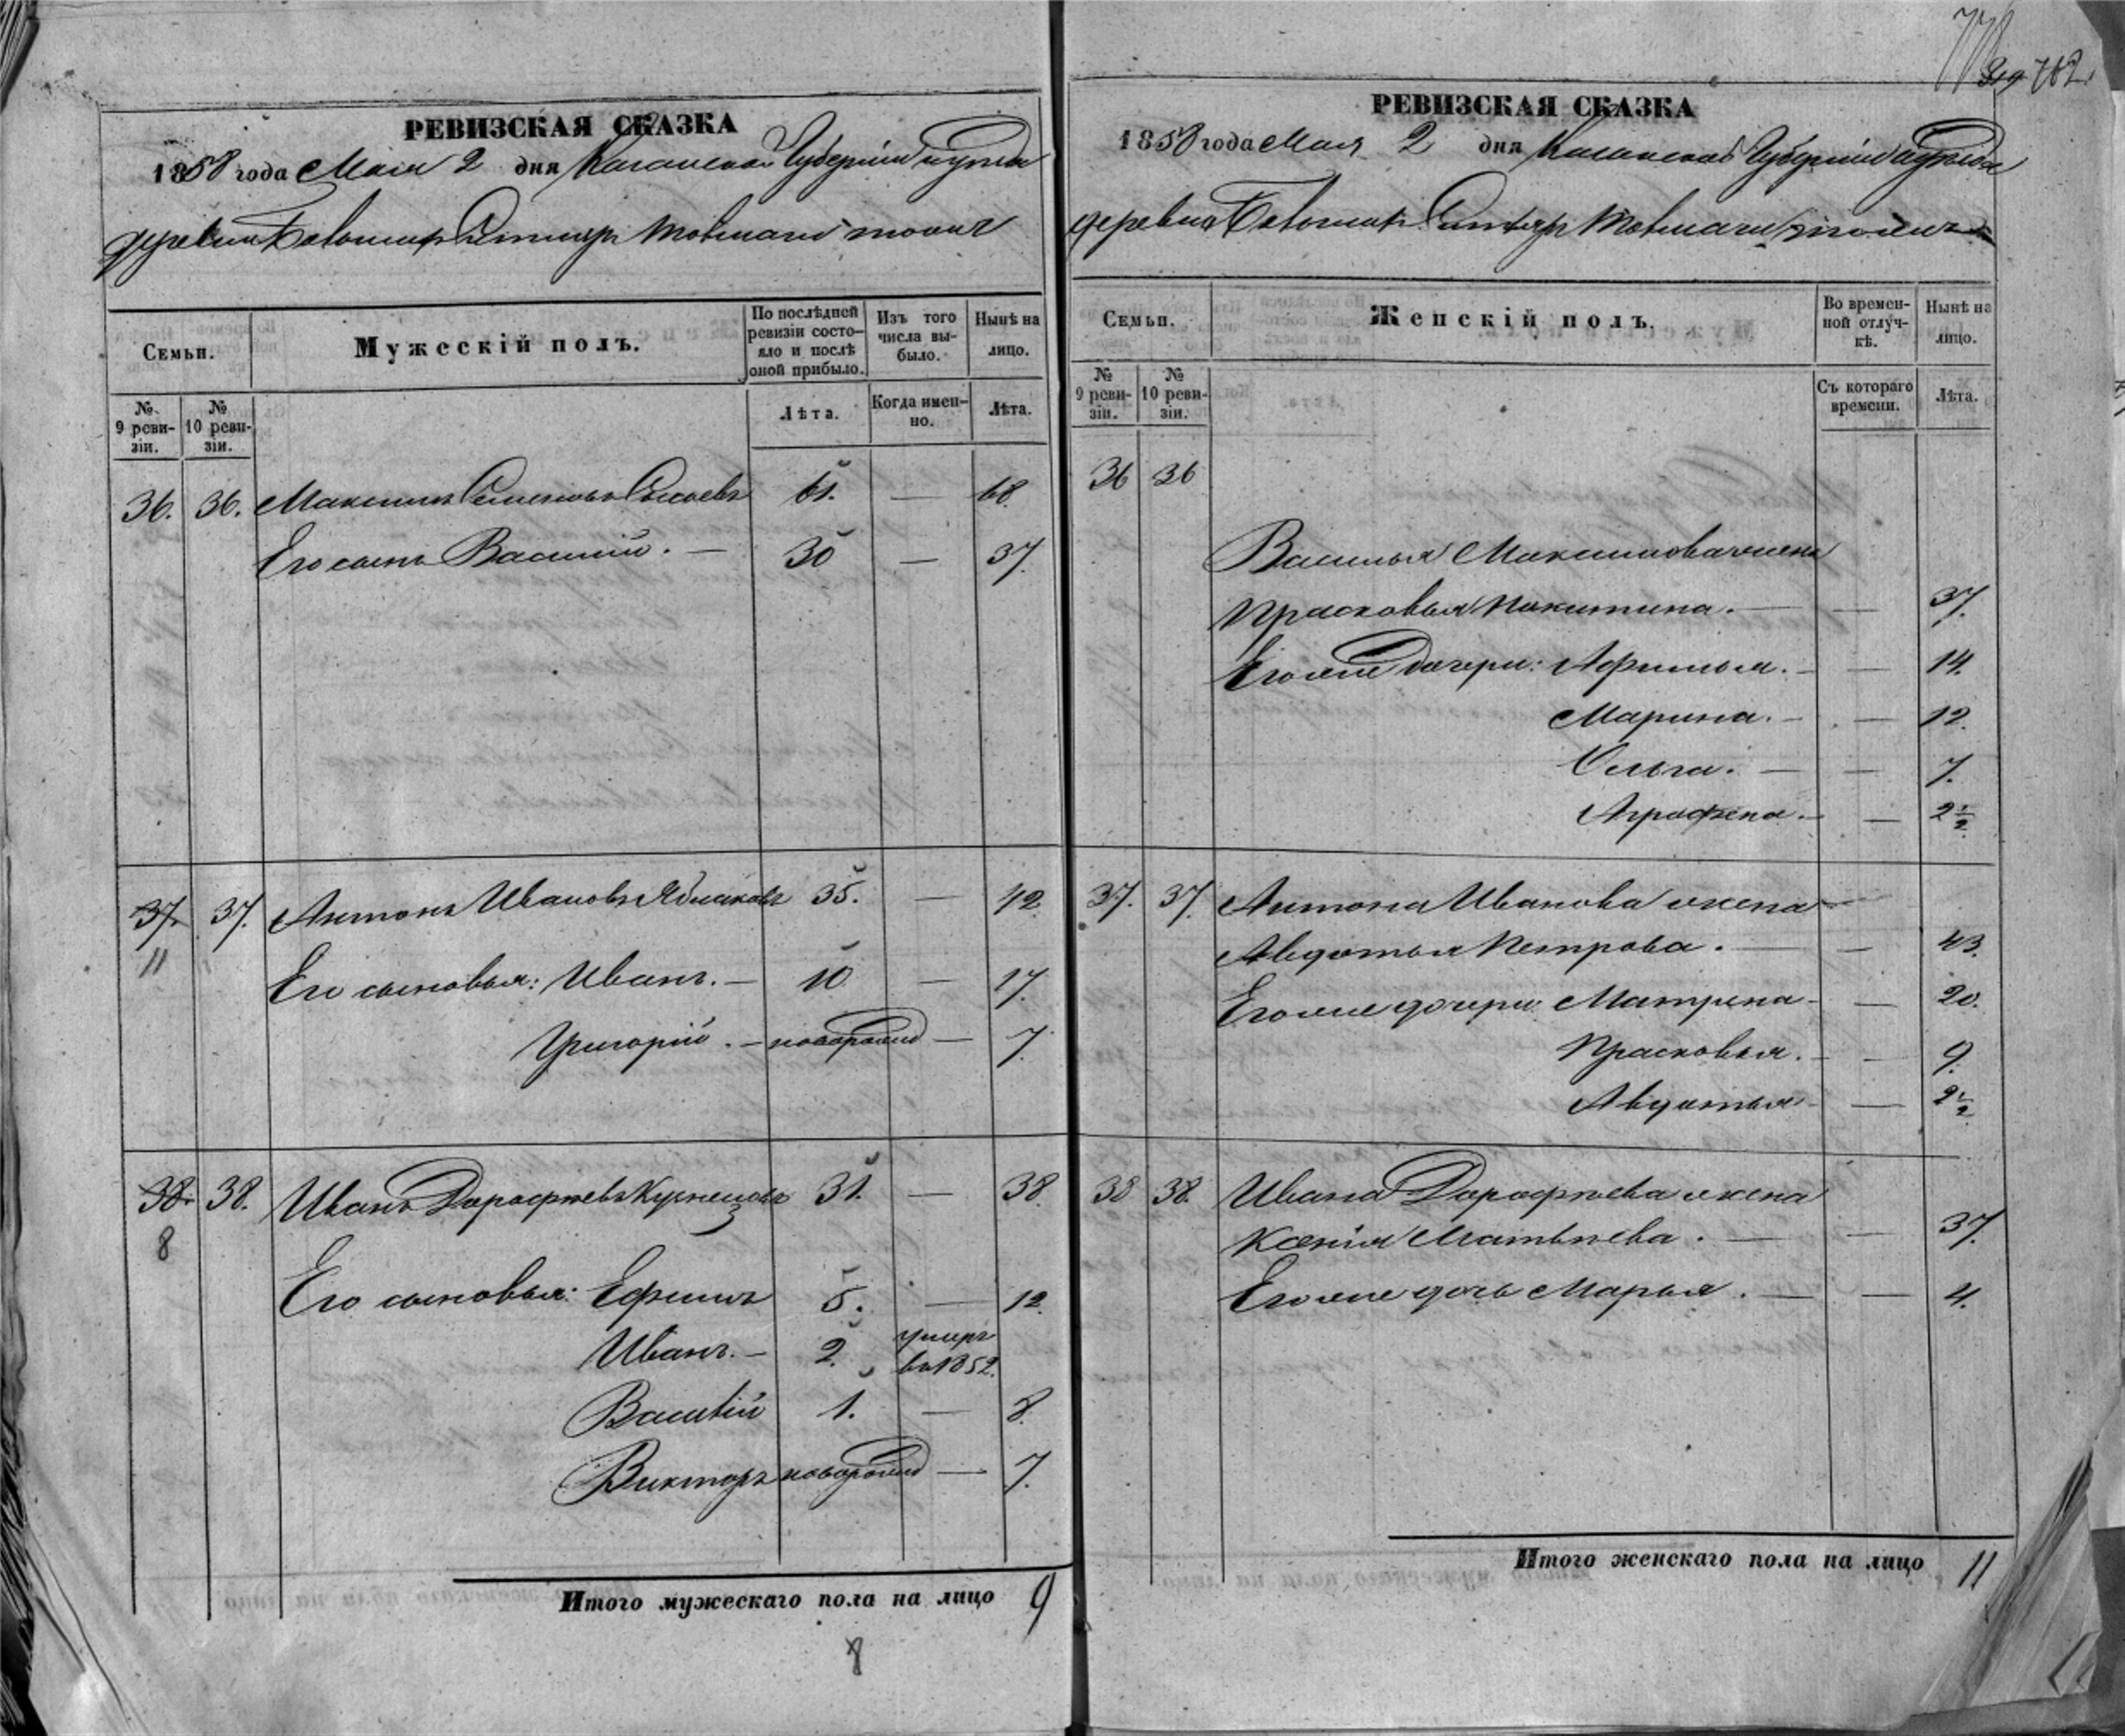 РЕВИЗСКАЯ СКАЗКА
1858 года Мая 2 дня Казанской Губерніи и уѣзда
деревни
Семьи.
Мужескій полъ.
По послѣдней ревизіи состояло и послѣ оной прибыло.
Изъ того числа выбыло.
Нынѣ на лицо.
№ 9 ревизіи.
№ 10 ревизіи.
Лѣта.
Когда именно.
Лѣта.
36. 36. Максимъ Семеновъ 61. — 68
Его сынъ Василій. — 30 — 37.
37. 37. Антонъ Ивановъ 35. — 42.
11
Его сыновья: Иванъ. — 10 — 17.
Григорій. — новорожд — 7.
38. 38. Иванъ Дорофѣевъ Кузнецовъ 31. — 38.
8
Его сыновья: Ефимъ 5. — 12.
Иванъ. — 2. умеръ въ 1852.
Василій 1. — 8.
Викторъ новорожд — 7.
Итого мужескаго пола на лицо 9
8
782
РЕВИЗСКАЯ СКАЗКА
1858 года Мая 2 дня Казанской Губерніи и уѣзда
деревни
Семьи.
Женскій полъ.
Во временной отлучкѣ.
Нынѣ на лицо.
№ 9 ревизіи.
№ 10 ревизіи.
Съ котораго времени.
Лѣта.
36 36
Василья Максимова жена
Прасковья Никитина. — — 37.
Его же дочери: Афимья. — — 14.
Марина. — — 12.
Ольга. — — 7.
Аграфена. — — 2 1/2
37. 37. Антона Иванова жена —
Авдотья Петрова. — — 43.
Его же дочери Матрена — — 20.
Прасковья. — — 9.
Авдотья — — 2 1/2
38 38. Ивана Дорофѣева жена
Ксенія Матвѣева. — — 37.
Его же дочь Марья. — — 4.
Итого женскаго пола на лицо 11